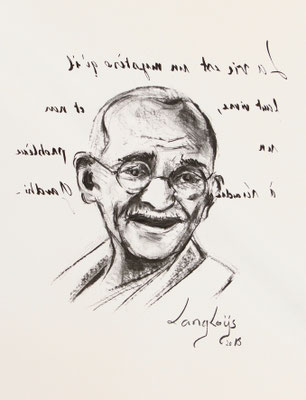 La vie est un mystère qu'il
faut vivre, et non
un problème
à résoudre Gandhi-
Langlaÿs
2013